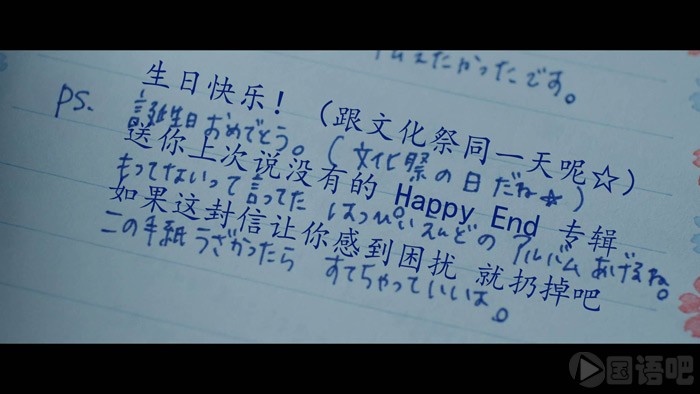 えたかったです。
生日快乐！（跟文化祭同一天呢☆）
PS. 誕生日おめでとう。（文化祭の日だね☆）
送你上次说没有的 Happy End 专辑
もってないって言ってた はっぴいえんどの アルバムあげるね。
如果这封信让你感到困扰 就扔掉吧
この手紙うざかったら すてちゃっていいよ。
国语吧